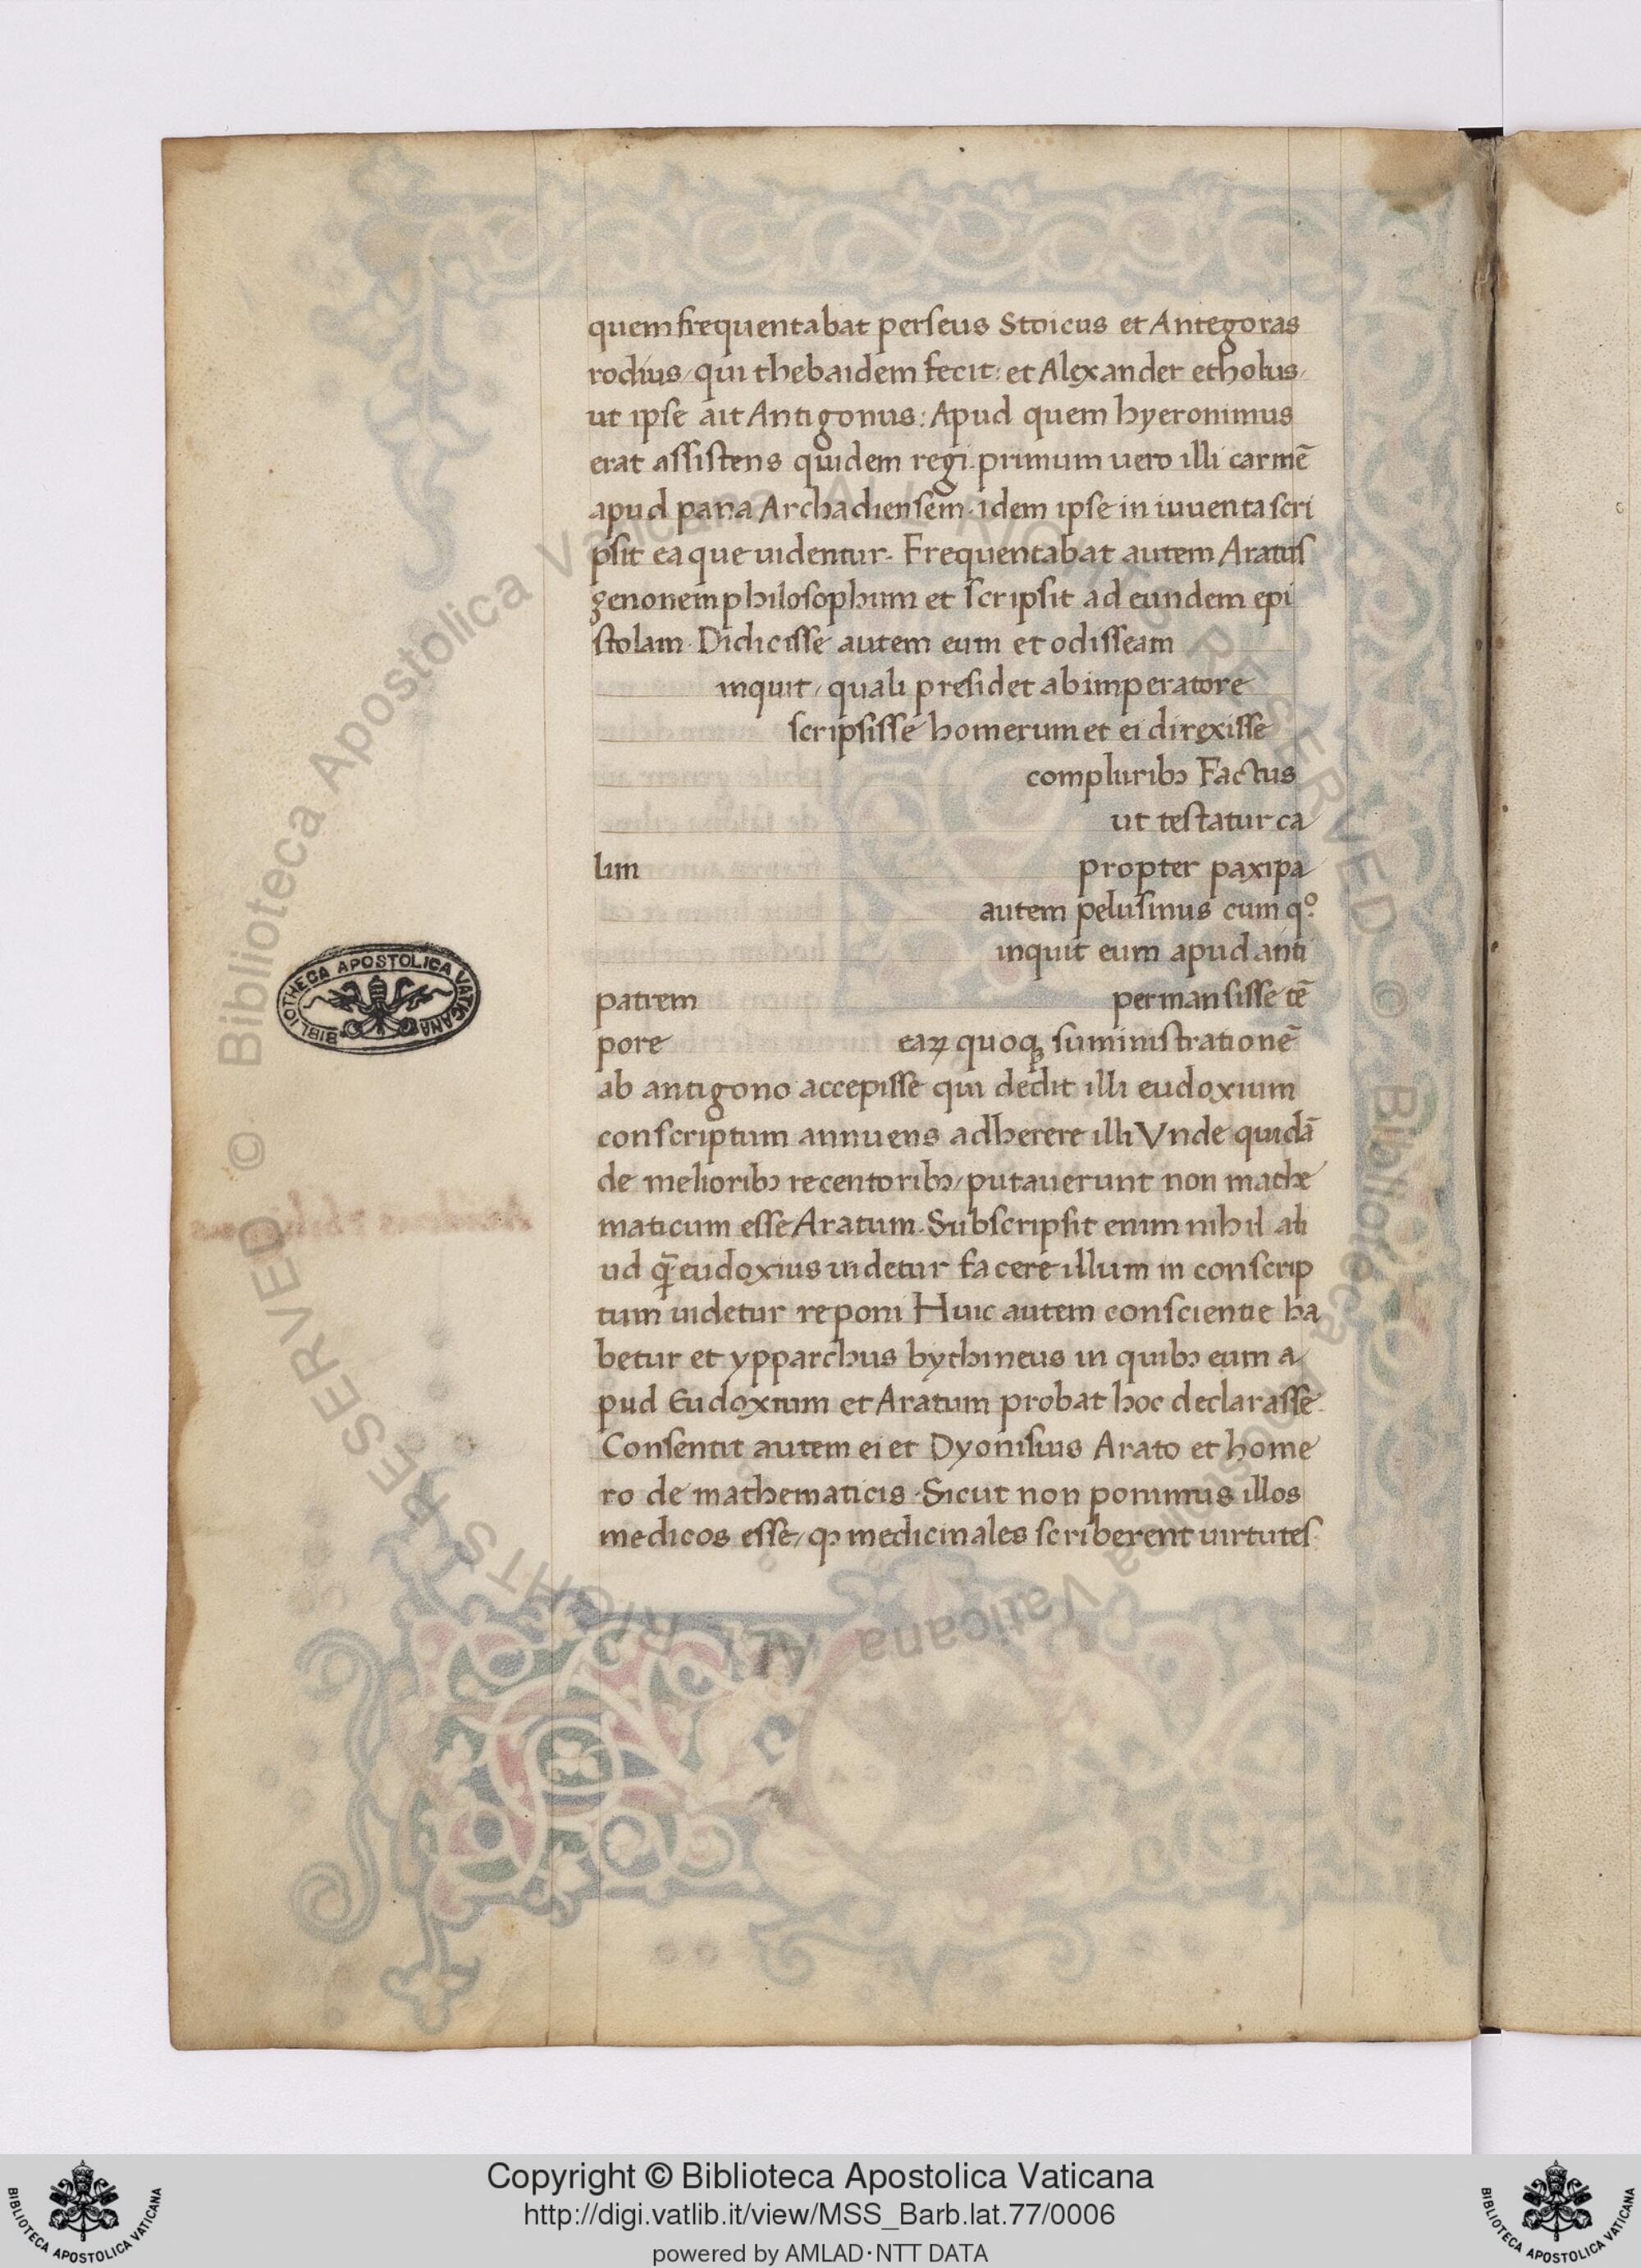 quem frequentabat perseus Stoicus et Antegoras
rodius, qui thebaidem fecit: et Alexander etholus,
ut ipse ait Antigonus: Apud quem hyeronimus
erat assistens quidem regi. primum uero illi carmē
apud pana Archadiensem. idem ipse in iuuenta scri
psit ea que uidentur. Frequentabat autem Aratus
zenonem philosophum et scripsit ad eundem epi
stolam. Didicisse autem eum et odisseam
inquit, quali presidet ab imperatore
scripsisse homerum et ei direxisse
compluribꝫ Factus
ut testatur ca
lim propter paxipa
autem pelusinus cum qº
inquit eum apud anti
patrem permansisse tē
pore eaꝝ quoqꝫ suministrationē
ab antigono accepisse qui dedit illi eudoxium
conscriptum annuens adherere illi Vnde quidā
de melioribꝫ recentoribꝫ, putauerunt non mathe
maticum esse Aratum. Subscripsit enim nihil ali
ud q̄ eudoxius uidetur facere illum in conscrip
tum uidetur reponi Huic autem conscientie ha
betur et ypparchus bythineus in quibꝫ eum a
pud Eudoxium et Aratum probat hoc declarasse.
Consentit autem ei et Dyonisius Arato et home
ro de mathematicis. Sicut non ponimus illos
medicos esse, qꝫ medicinales scriberent uirtutes.
BIBLIOTHECA APOSTOLICA VATICANA
© Biblioteca Apostolica Vaticana ALL RIGHTS RESERVED © Biblioteca Apostolica Vaticana ALL RIGHTS RESERVED
Copyright © Biblioteca Apostolica Vaticana
http://digi.vatlib.it/view/MSS_Barb.lat.77/0006
powered by AMLAD·NTT DATA
BIBLIOTECA APOSTOLICA VATICANA
BIBLIOTECA APOSTOLICA VATICANA